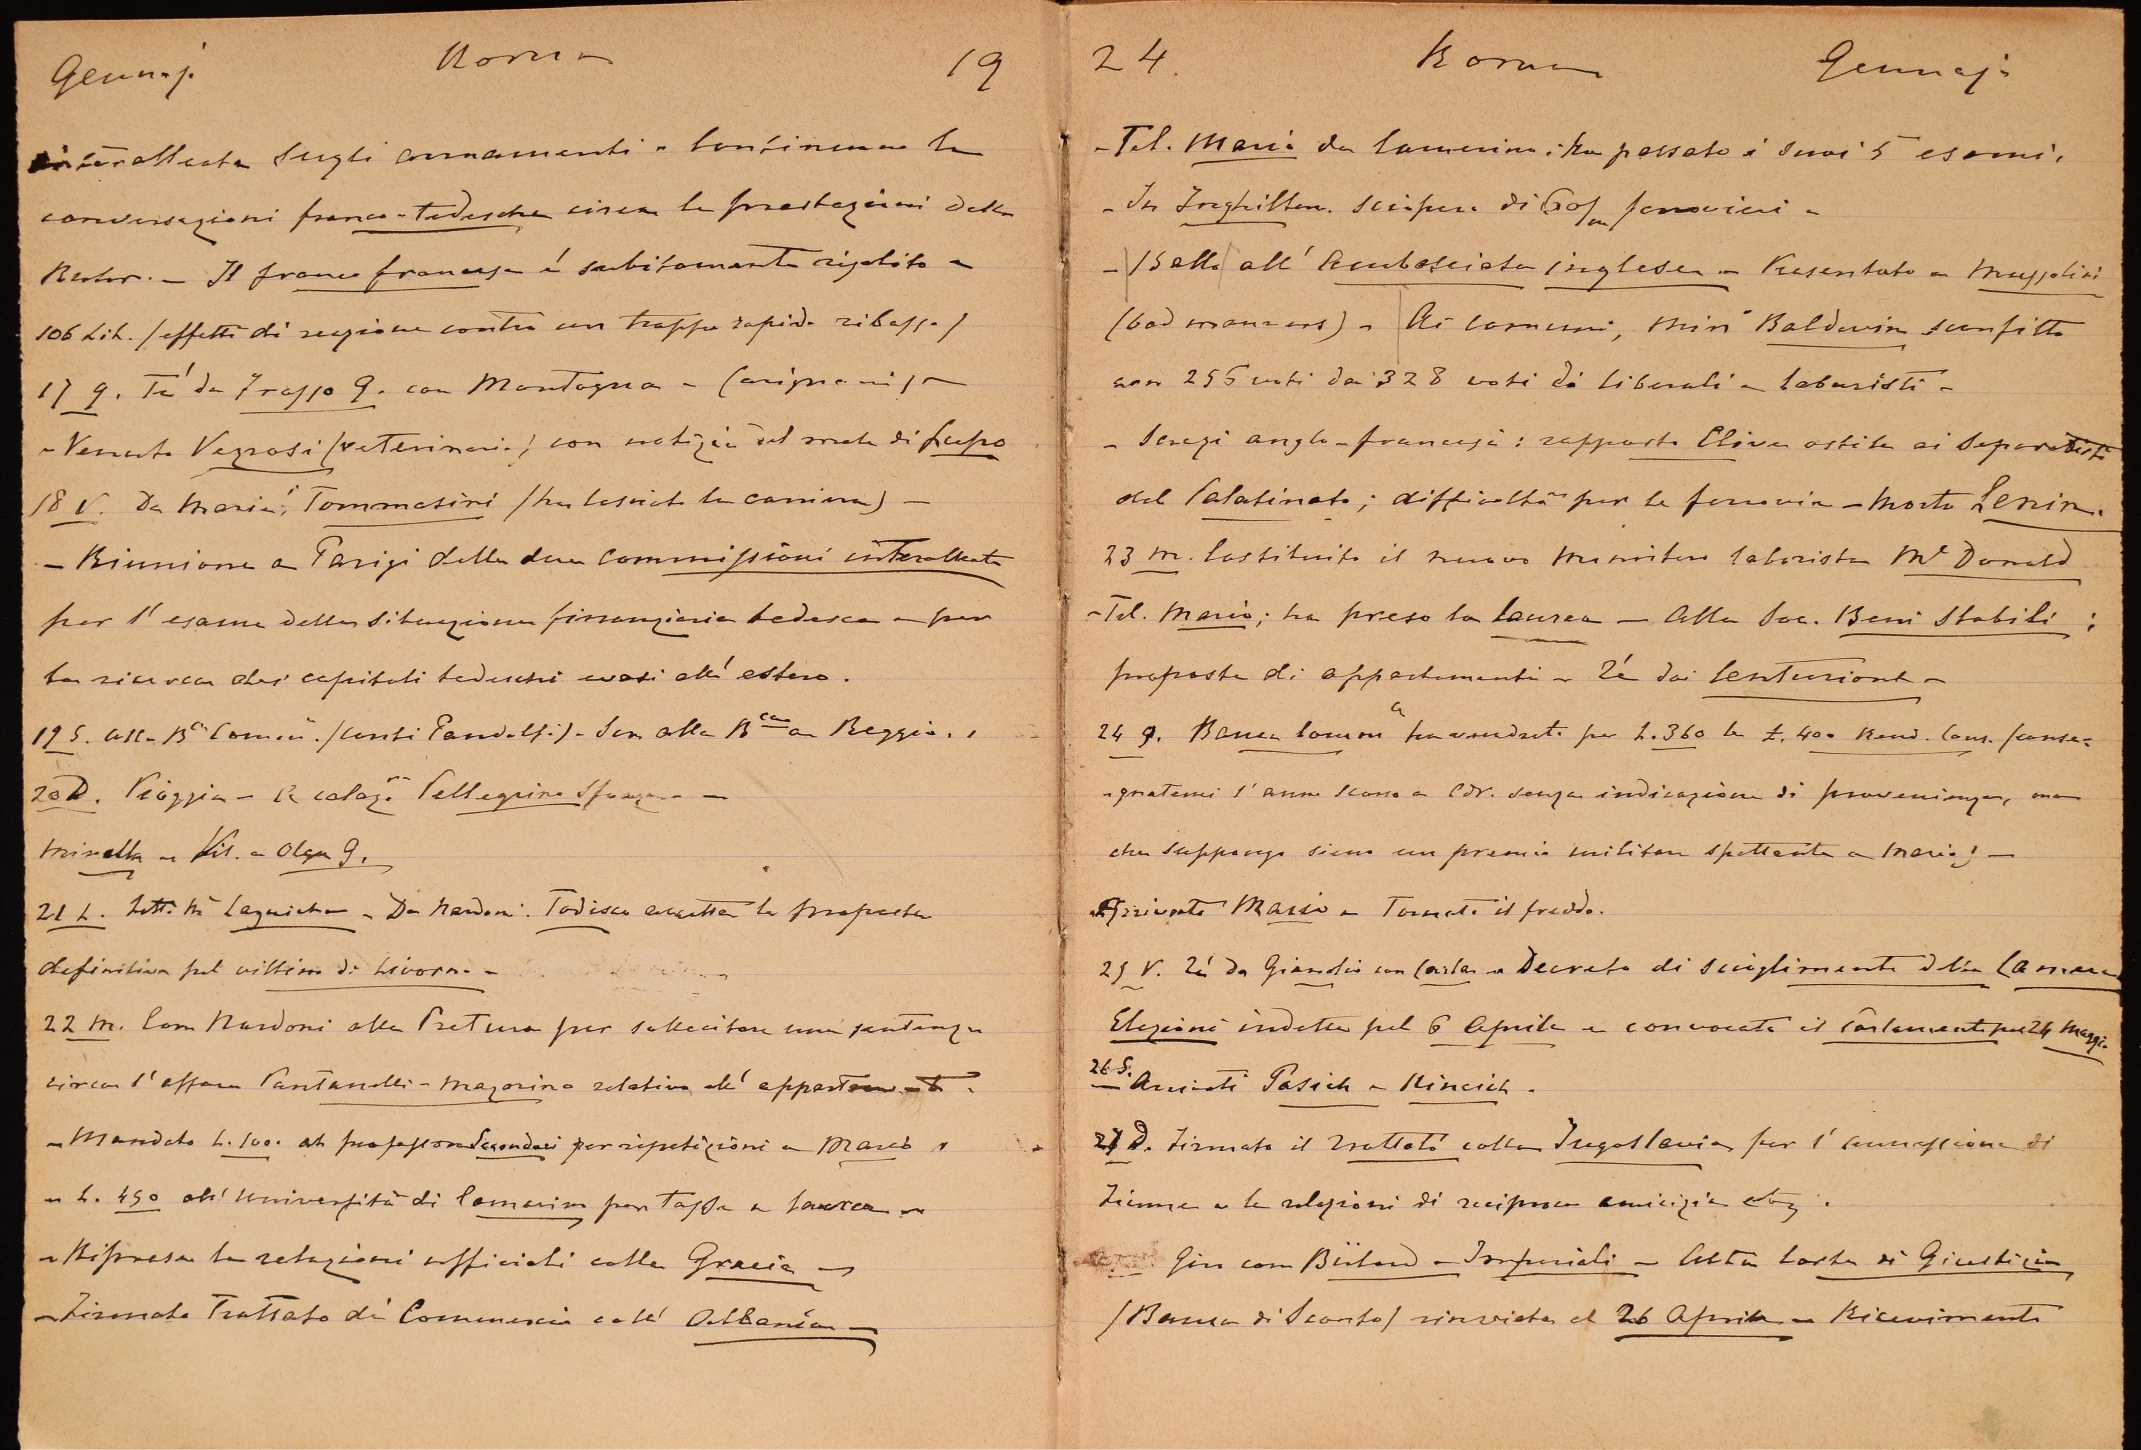 Gennaj Roma 19
interalleata sugli armamenti - Continuano le
conversazioni franco-tedesche circa le prestazioni della
Ruhr. - Il franco francese è subitamente risalito a
106 Lit. (effetti di reazione contro un troppo rapido ribasso)
17 g. Té da Frasso G. con Montagna -
- Venuto Vegrosi (veterinario) con notizie del male di Lupo
18 V. Da Maria, Tommasini (ha lasciato la carriera) -
- Riunione a Parigi delle due commissioni interalleate
per l'esame della situazione finanziaria tedesca e per
la ricerca dei capitali tedeschi evasi all'estero.
19 S. alla Bca Comm. (conti Pandolfi) - alla Bca a Reggio.
20 D. Pioggia - a colaz. Pellegrino
Minella - Vis. a Olga G.
21 L. Lett. - Da Nardoni. Todisco accetta la proposta
definitiva pel villino di Livorno -
22 M. Con Nardoni alla Pretura per sollecitare una sentenza
circa l'affare Pantanelli-Magorino relativo all'appartamento.
- Mandato L. 500. al professore Secondari per ripetizioni a Mario
- L. 450 all'Università di Camerino per Tasse e laurea -
- Riprese le relazioni ufficiali colla Grecia -
- Firmato Trattato di Commercio coll'Albania -
24. Roma Gennajo
- Tel. Mario da Camerino: ha passato i suoi 5 esami.
- In Inghilterra. sciopero di 60/m ferrovieri -
- (Ballo all'Ambasciata inglese - Presentato a Mussolini
(bad manners) - Ai Comuni, Minro Baldwin sconfitto
con 256 voti da 328 voti di liberali e laburisti -
- Screzi anglo-francesi: rapporto Clive ostile ai Separatisti
del Palatinato; difficoltà per le ferrovie - Morto Lenin.
23 m. Costituito il nuovo ministero laborista Mc Donald
- Tel. Mario; ha preso la laurea - Alla Soc. Beni Stabili:
proposta di appartamenti - Té dai Centurione -
24 g. Banca Comm a ha venduto per L. 360 le £. 400 Rend. Cons. (conse-
-gnatemi l'anno scorso a senza indicazione di provenienza, ma
che suppongo sieno un premio militare spettante a Mario) -
- Arrivato Mario - Tornato il freddo.
25 V. Té da con Carla - Decreto di scioglimento della Camera
Elezioni indette pel 6 Aprile e convocato il Parlamento pel 24 Maggio
26 S. Arrivati Pasich - Nincich.
27 D. Firmato il trattato colla Jugoslavia per l'annessione di
Fiume e le relazioni di reciproca amicizia etc.
Giro con Bülow - Imperiali - Alta Corte di Giustizia
(Banca di Sconto) rinviata al 26 Aprile - Ricevimento